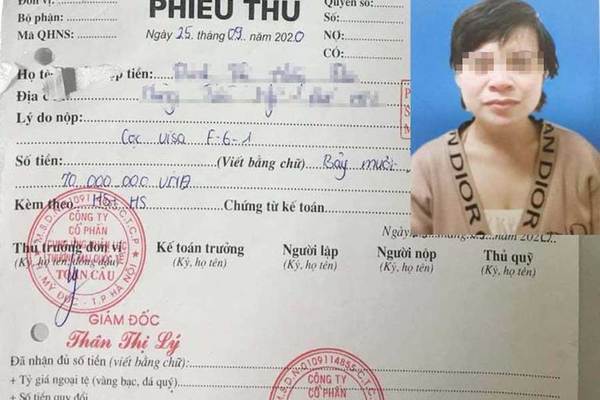 Đơn vị:
PHIẾU THU
Quyển số:
Bộ phận:
Số:
Mã QHNS:
Ngày 25 tháng 09 năm 2020
NỢ:
CÓ:
Họ tê p tiền:
Địa c
Lý do nộp:
Cọc visa F-6-1
Số tiền: (Viết bằng chữ) Bảy mươi
70 000 000 VNĐ
Kèm theo: HS Chứng từ kế toán:
Thủ trưởng đơn vị Kế toán trưởng Người lập Người nộp Thủ quỹ
(Ký, họ tên, đóng dấu) (Ký, họ tên) (Ký, họ tên) (Ký, họ tên) (Ký, họ tên)
M.S.D.N:0109114855-C.T.C.P
CÔNG TY
CỔ PHẦN
TOÀN CẦU
MỸ ĐỨC - T.P HÀ NỘI
GIÁM ĐỐC
Thân Thị Lý
Đã nhận đủ số tiền (viết bằng chữ):
+ Tỷ giá ngoại tệ (vàng bạc, đá quý).
+ Số tiền quy đổi.
M.S.D.N:0109114855-C.T.C.P
CÔNG TY
CỔ PHẦN
AN DIOR
AN DIOR